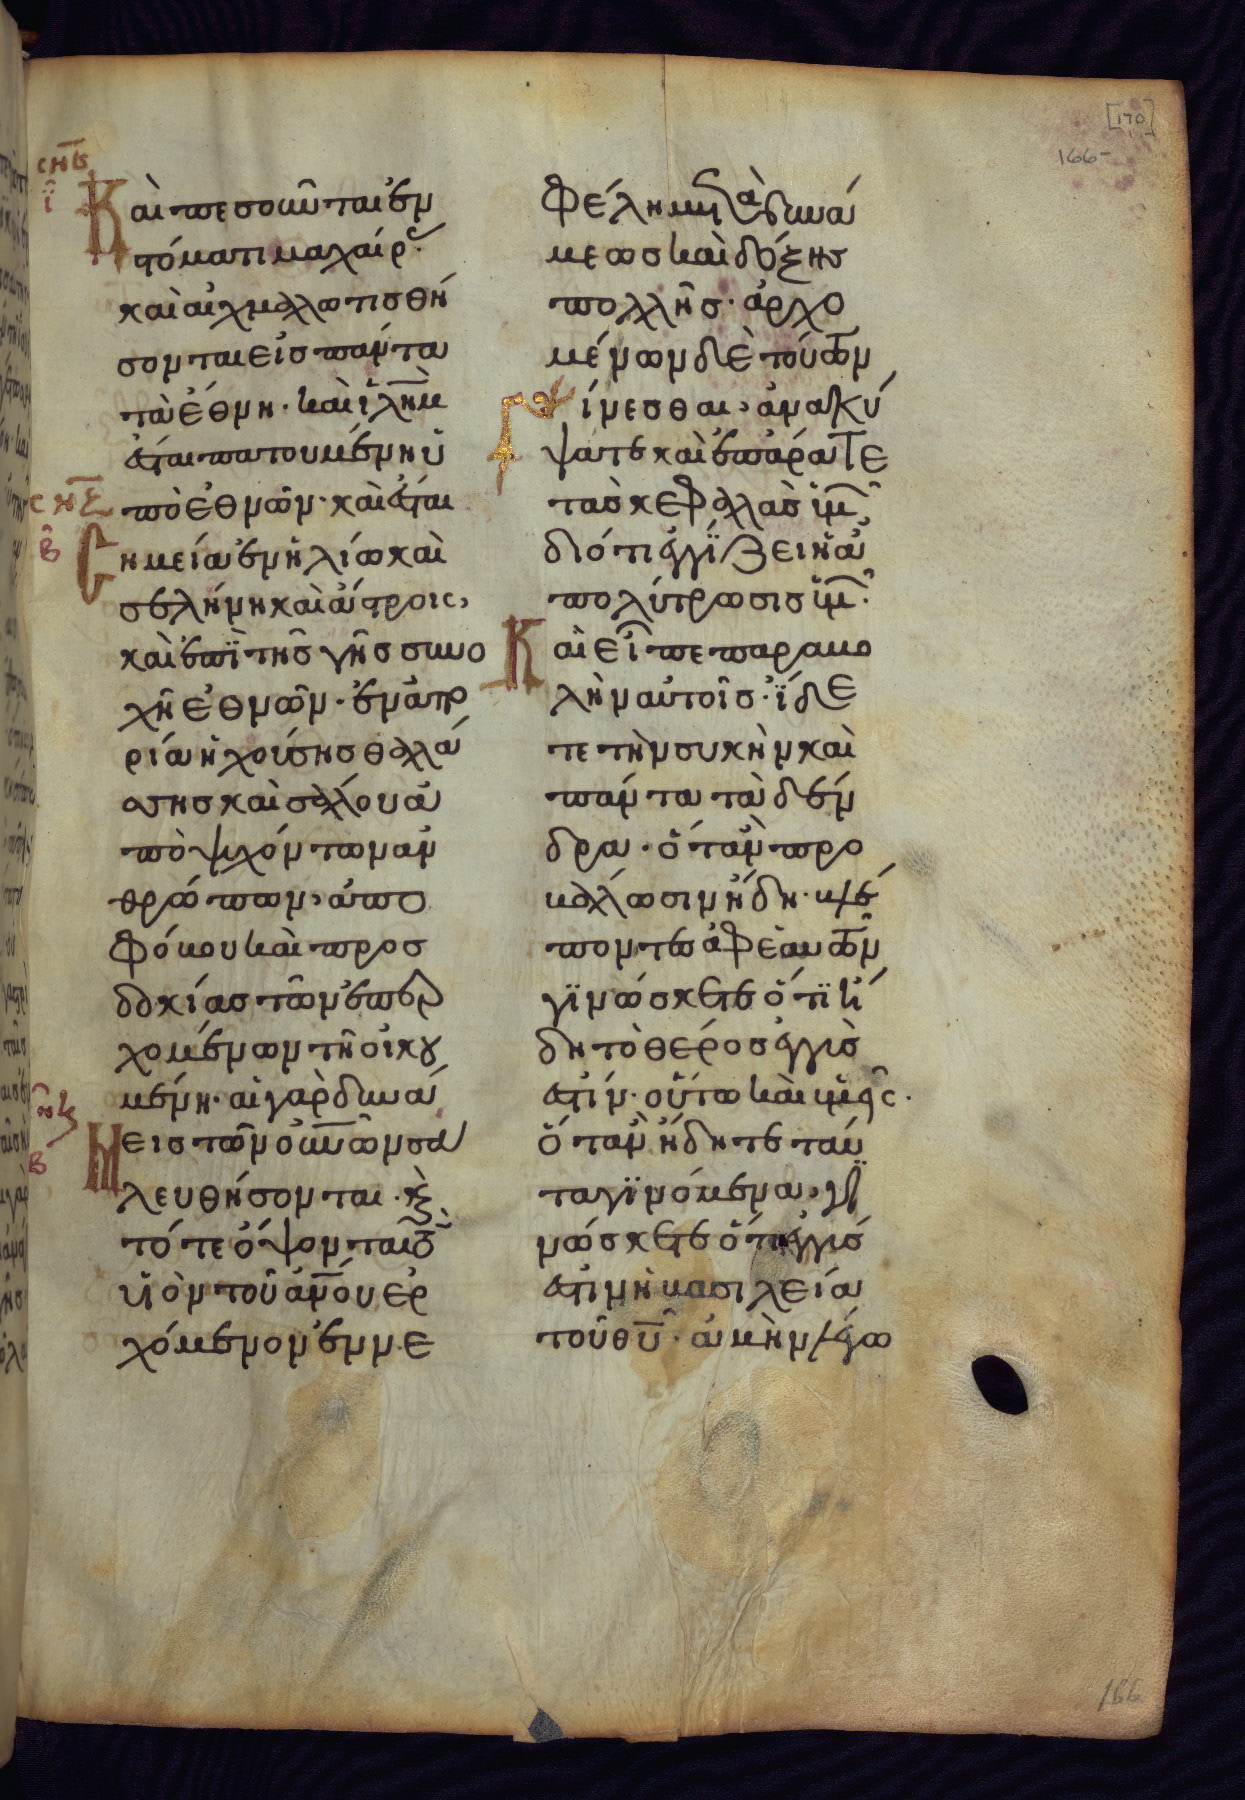 [170]
166
σνθ
ι
Καὶ πεσοῦνται ἐν
στόματι μαχαίρας·
καὶ αἰχμαλωτισθή
σονται εἰς πάντα
τὰ ἔθνη· καὶ ἰλὴμ
ἔσται πατουμένη ὑ
πὸ ἐθνῶν· καὶ ἔσται
σνξ
β
Σημεία ἐν ἡλίω καὶ
σελήνη καὶ ἄστροις,
καὶ ἐπῒ τῆς γῆς συνο
χὴ ἐθνῶν· ἐν ἀπο
ρία ἠχούσης θαλά
σσης καὶ σάλου ἀ
πὸ ψυχόντων ἀν
θρώπων, ἀπὸ
φόβου καὶ προσ
δοκίας τῶν ἐπερ
χομένων τῆ οἰκου
μένη· αἱ γὰρ δυνά
β
Μεις τῶν οὐνῶν σα
λευθήσονται· κὲ
τότε ὄψονται τὸν
υἱὸν τοῦ ἀνόυ ἐρ
χόμενον ἐν νε
φέλη μετὰ δυνά
μεως καὶ δόξης
πολλῆς· ἀρχο
μένων δὲ τούτων
γίνεσθαι, ἀνακύ
ψατε καὶ ἐπάρατε
τὰς κεφαλὰς ὑμῶν,
διότι ἐγγΐζει ἡ ἀ
πολύτρωσις ὑμῶν·
Καὶ εἶπε παραβο
λὴν αὐτοῖς· ἴδε
τε τὴν συκὴν καὶ
πάντα τὰ δέν
δρα· ὅταν προ
βάλωσιν ἤδη· βλέ
ποντες ἀφ' ἑαυτῶν
γϊνώσκετε ὅτϊ ἤ
δη τὸ θέρος ἐγγὺς
ἐστίν· οὕτω καὶ ὑμεῖς·
ὅταν ἴδητε ταῦ
τα γϊνόμενα, γι
νώσκετε ὅτι ἐγγύς
ἐστιν ἡ βασιλεία
τοῦ θυ· ἀμὴν λέγω
166